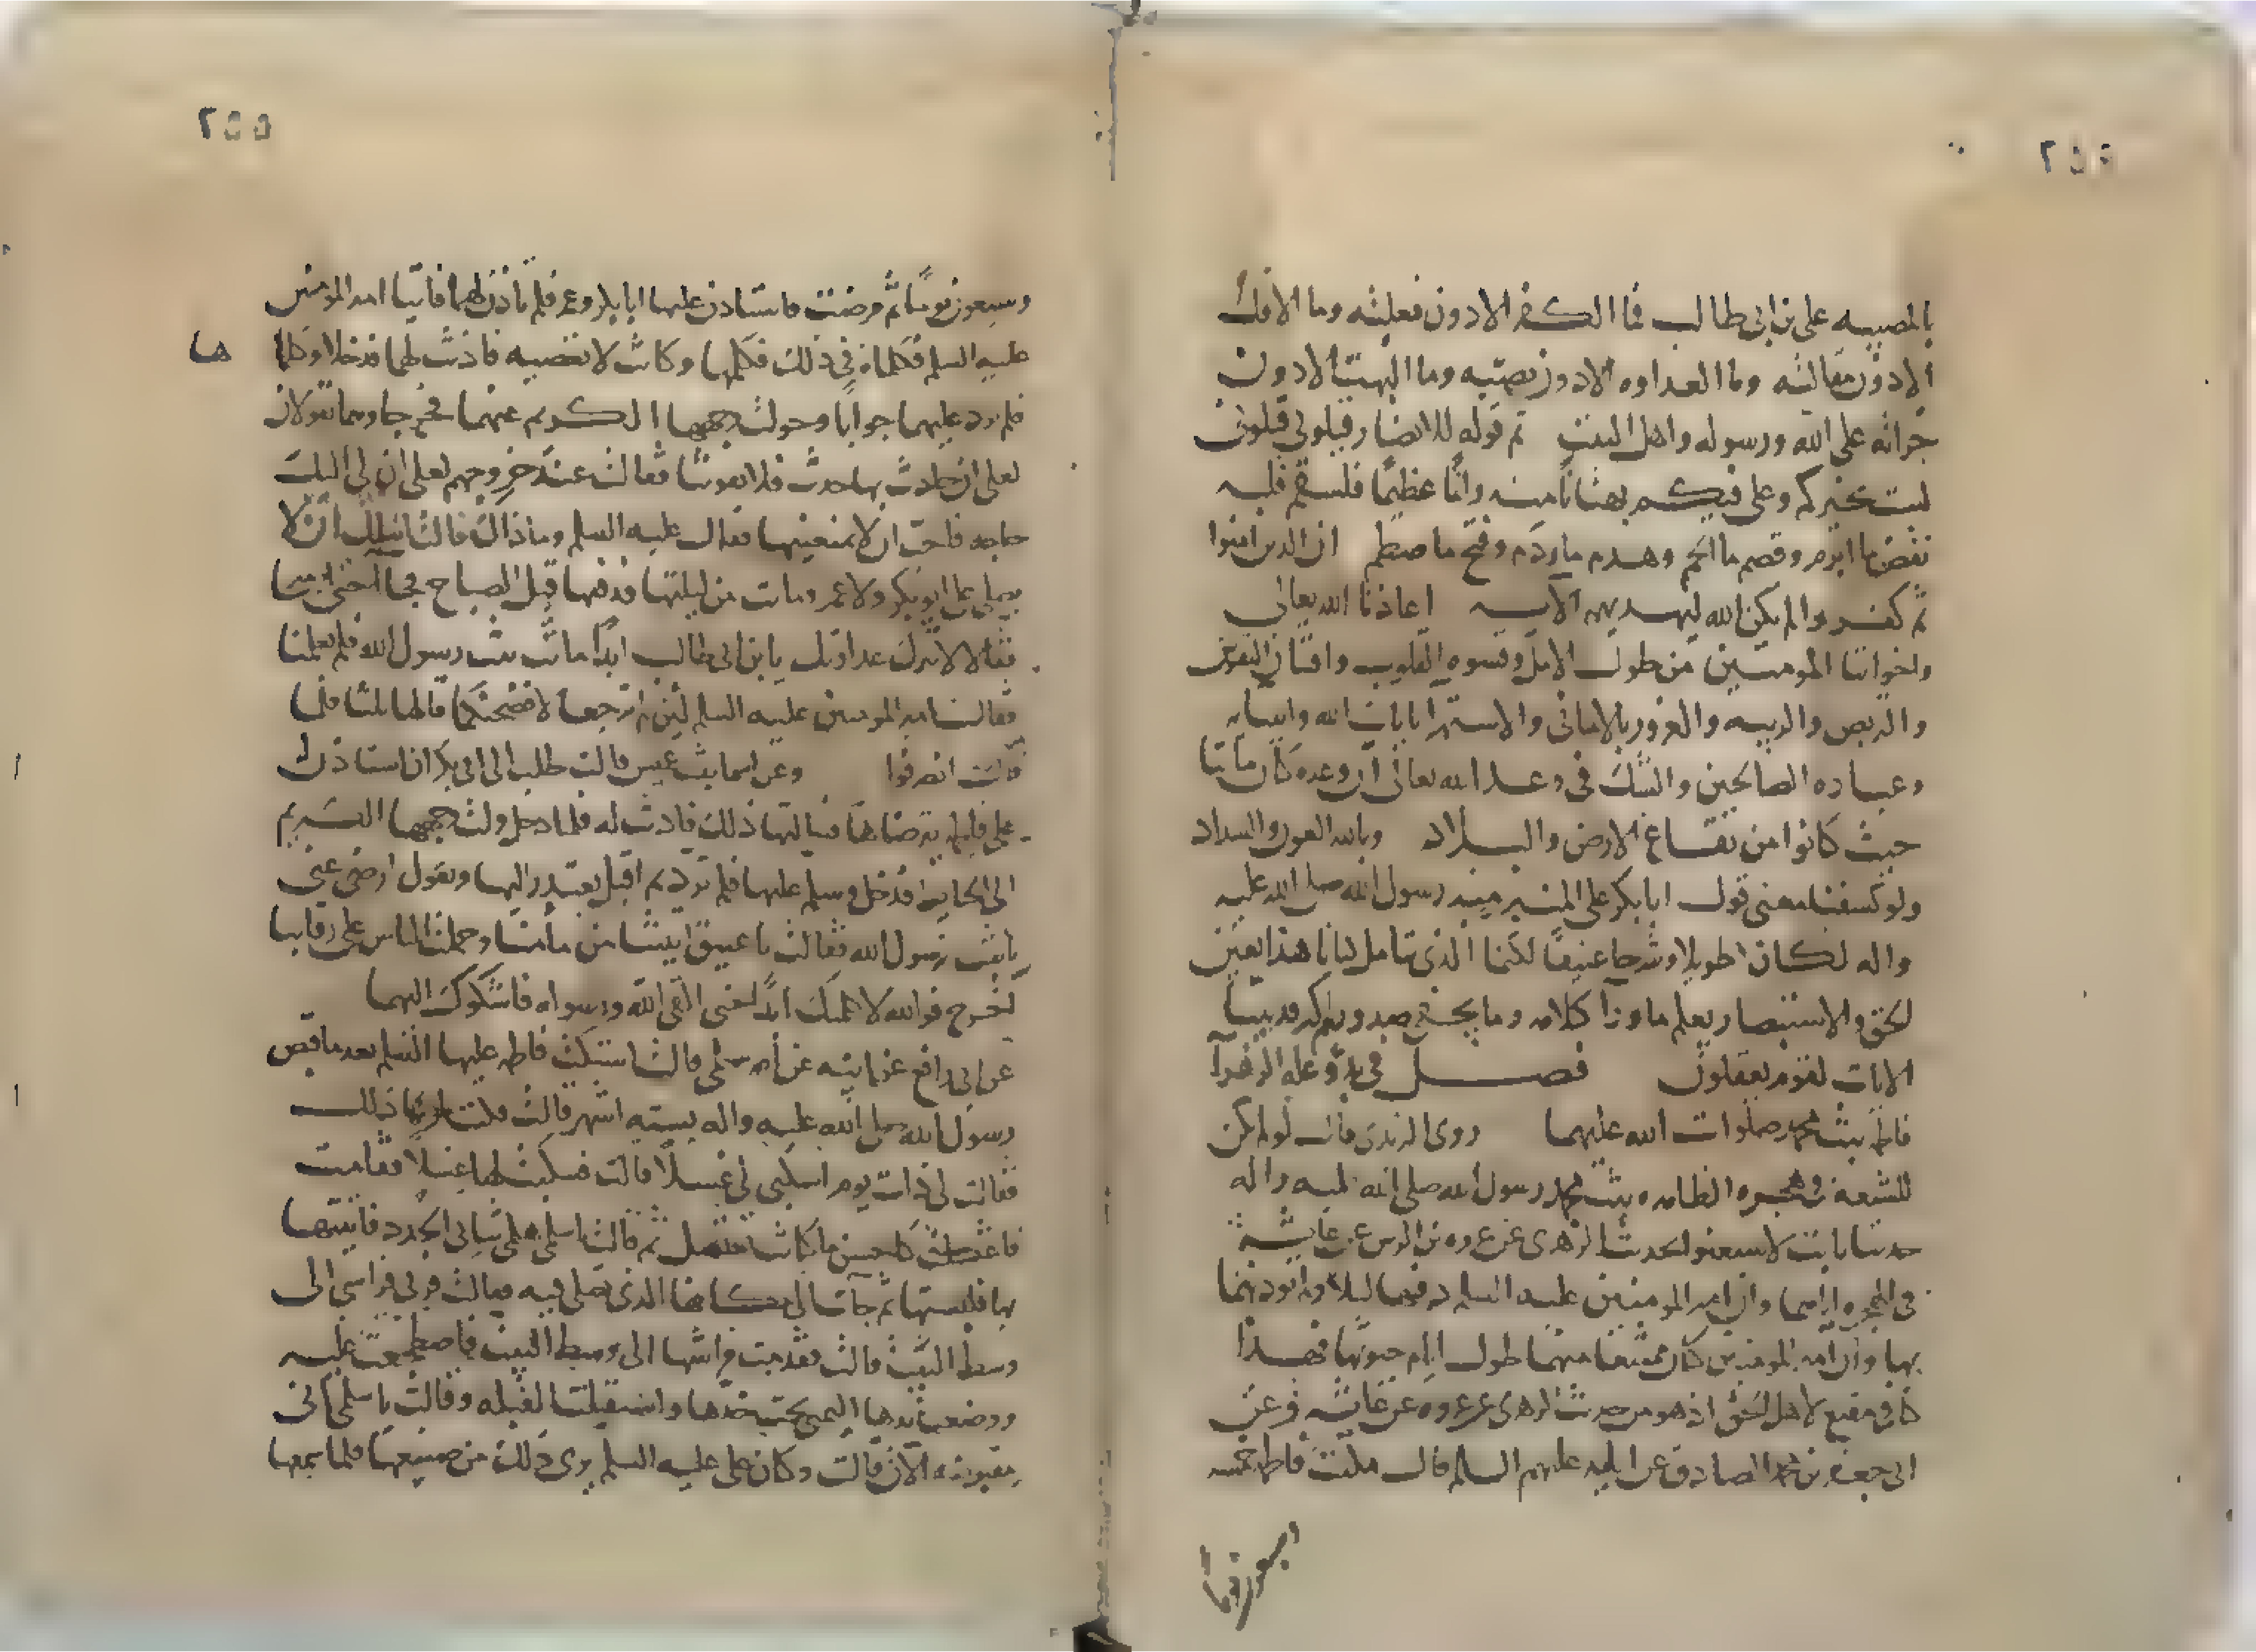 بالمصيبه على بن ابى طالب فما الكفر الا دون فعليته وما الافك
الا دون مقالته وما العداوه الا دون نصبه وما البهت الا دون
جراته على الله ورسوله واهل البيت ثم قوله للانصار قيلونى قيلونى
لست بخيركم وعلى فيكم بهتانا منه واثما عظيما قلبه
نقض ما ابرم وقصم ما احكم وهدم ما ردم وفتح ما ان الذين امنوا
ثم كفروا لم يكن الله ليهديهم الآيه اعاذنا الله تعالى
واخواننا المومنين من طول الامل وقسوه القلوب وافتتان النفوس
والتربص والريبه والغرور بالامانى والاستهزا بايات الله وانبيايه
وعباده الصالحين والشك فى وعد الله تعالى ان وعده كان ماتيا
حيث كانوا من بقاع الارض والبلاد وبالله العون والسداد
ولو كشفنا معنى قول ابا بكر على المنبر منبر رسول الله صلى الله عليه
واله لكان طويلا وشرحا عنيفا لكنما الذى تامل كتابنا هذا بعين
الحق والاستبصار يعلم ما ورا كلامه وما يخفى صدورهم اكبر قد بينا
الايات لقوم يعقلون فصل فى علة الزهرا
فاطمه بنت محمد صلوات الله عليهما روى قال لو لم يكن
للشيعه فى هجره الطاهره بنت محمد رسول الله صلى الله عليه واله
حدثنا الا حديث الزهرى عن عروه بن الزبير عن عايشه
فى الهجره اياهما وان امير المومنين عليه السلم دفنها ليلا ولم يوذنهما
بها وان امير المومنين كان ممتنعا منهما طول ايام حيوتها فهذا
كاف مقنع لاهل الحق اذ هو من حديث الزهرى عن عروه عن عايشه وعن
ابى جعفر بن محمد الصادق عن ابيه عليهم السلم قال مكثت فاطمه خمسه
وسبعون يوما
٢٥٥
وسبعون يوما ثم مرضت فاستاذن عليها ابا بكر وعمر فلم تاذن لهما فاتيا امير المومنين
عليه السلم فكلماه فى ذلك فكلمها وكانت لا تعصيه فاذنت لهما فدخلا وكلما
ها
فلم ترد عليهما جوابا وحولت وجهها الكريم عنهما فخرجا وهما يقولان
لعلى ان حدث بها حدث فلا تفوتنا فقالت عند خروجهم لعلى ان لى اليك
حاجه فاحب ان لا تمنعنيها فقال عليه السلم وما ذاك قالت اسالك ان لا
يصلى على ابو بكر ولا عمر وماتت من ليلتها فدفنها قبل الصباح فجا
فقالا لا تترك عداوتك يا بن ابى طالب ابدا ماتت بنت رسول الله فلم تعلمنا
فقال امير المومنين عليه السلم لئن لم ترجعا لافضحنكما قالها ثلثا فلما
قالت انصرفوا وعن اسما بنت عميس قالت طلب الى ابى بكر ان استاذن له
على فاطمه يترضاها فسالتها ذلك فاذنت له فلما دخل ولت وجهها الكريم
الى الحايط فدخل وسلم عليها فلم ترد ثم اقبل يعتذر اليها ويقول ارضى عنى
يا بنت رسول الله فقالت يا عتيق اتيتنا من مامننا وحملت الناس على رقابنا
اخرج فوالله لا كلمتك ابدا حتى القى الله ورسوله فاشكوك اليهما
عن ابى رافع عن ابيه عن امه سلمى قالت اشتكت فاطمه عليها السلم بعد ما قبض
رسول الله صلى الله عليه واله بسته اشهر قالت فكنت امرضها ذلك
فقالت لى ذات يوم اسكبى لى غسلا قالت فسكبت لها غسلا فقامت
فاغتسلت كاحسن ما كانت تغتسل ثم قالت يا سلمى هلمى ثيابى الجدد فاتيتها
بها فلبستها ثم جات الى مكانها الذى تصلى فيه فقالت قربى فراشى الى
وسط البيت قالت فقدمت فراشها الى وسط البيت فاضطجعت عليه
ووضعت يدها اليمنى تحت خدها واستقبلت القبله وقالت يا سلمى انى
مقبوضه الان قالت وكان على عليه السلم يرى ذلك من صنيعها فلما سمعها